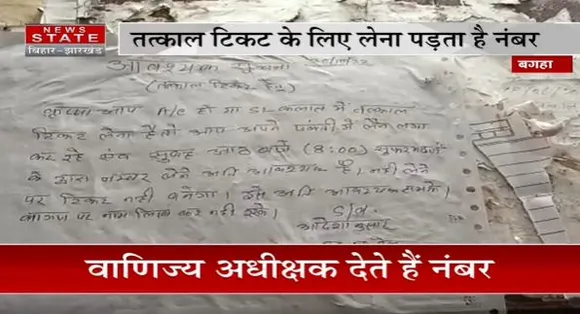 NEWS
STATE
बिहार-झारखंड
तत्काल टिकट के लिए लेना पड़ता है नंबर
बगहा
आवश्यक सूचना
(तत्काल टिकट हेतु)
कृपया आप A/C हो या SL क्लास में तत्काल
टिकट लेना है तो आप अपने पंक्ति में लैन लगा
कर रहे एवं सुबह आठ बजे (8:00)
के द्वारा नम्बर लेना अति आवश्यक है। नहीं लेने
पर टिकट नहीं बनेगा। इसे अति आवश्यक समझे।
कागज पर नाम लिख कर नहीं रखे।
वाणिज्य अधीक्षक देते हैं नंबर